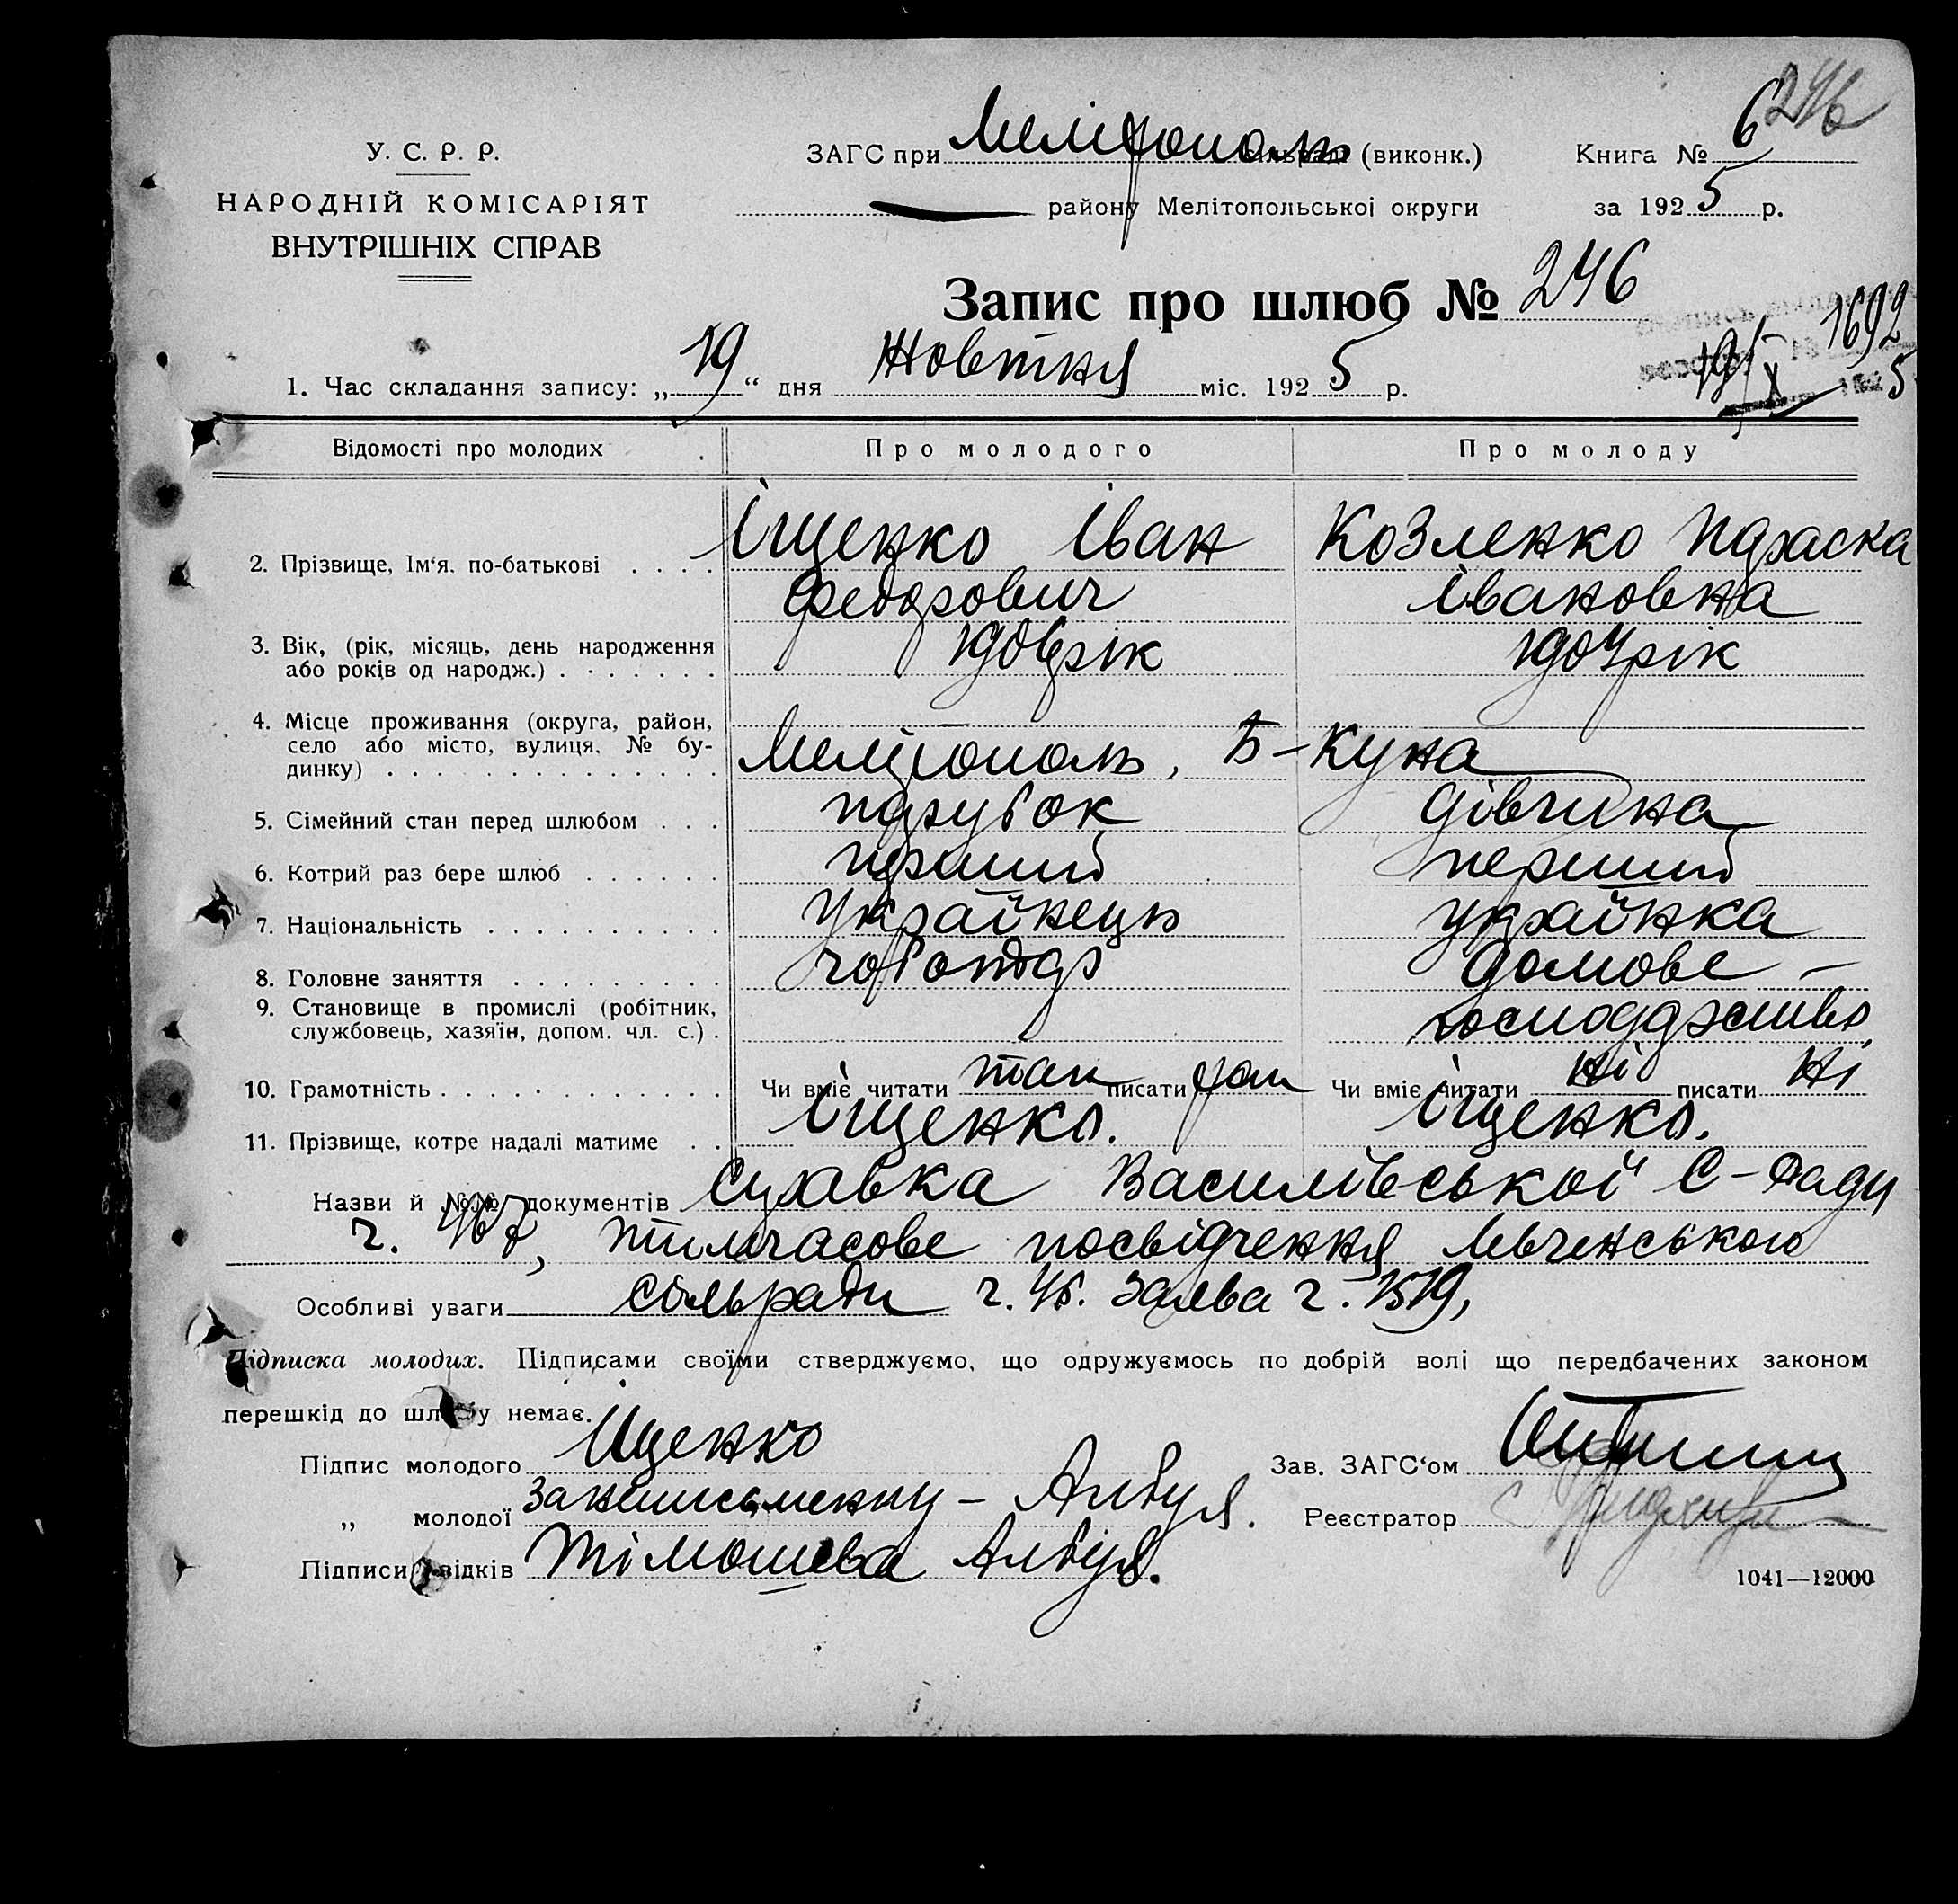 246
У. С. Р. Р.
НАРОДНІЙ КОМІСАРІЯТ
ВНУТРІШНІХ СПРАВ
ЗАГС при Мелітополь сільраді (виконк.) Книга № 6
району Мелітопольської округи за 1925 р.
Запис про шлюб № 246
1692
19/X 5
1. Час складання запису: „19“ дня Жовтня міс. 1925 р.
Відомості про молодих Про молодого Про молоду
2. Прізвище, Ім‘я. по-батькові Іщенко Іван Козленко Параска
Федорович Івановна
3. Вік, (рік, місяць, день народження
або років од народж.) 1906 рік 1904 рік
4. Місце проживання (округа, район,
село або місто, вулиця. № бу-
динку) Мелітополь, Б-Куна
5. Сімейний стан перед шлюбом парубок дівчина
6. Котрий раз бере шлюб перший перший
7. Національність Українець українка
8. Головне заняття чоботар домове –
9. Становище в промислі (робітник,
службовець, хазяїн, допом. чл. с.) господарство
10. Грамотність Чи вміє читати так писати так Чи вміє читати ні писати ні
11. Прізвище, котре надалі матиме Іщенко. Іщенко.
Назви й №№ документів Василівської С-Ради
ч. 467, тимчасове посвідчення
Особливі уваги сільради ч. Заява ч. 1519,
Підписка молодих. Підписами своїми стверджуємо, що одружуємось по добрій волі що передбачених законом
перешкід до шлюбу немає.
Підпис молодого Іщенко Зав. ЗАГС‘ом
„ молодої за неписьменну –
Реєстратор
Підписи свідків Тімошева
1041—12000